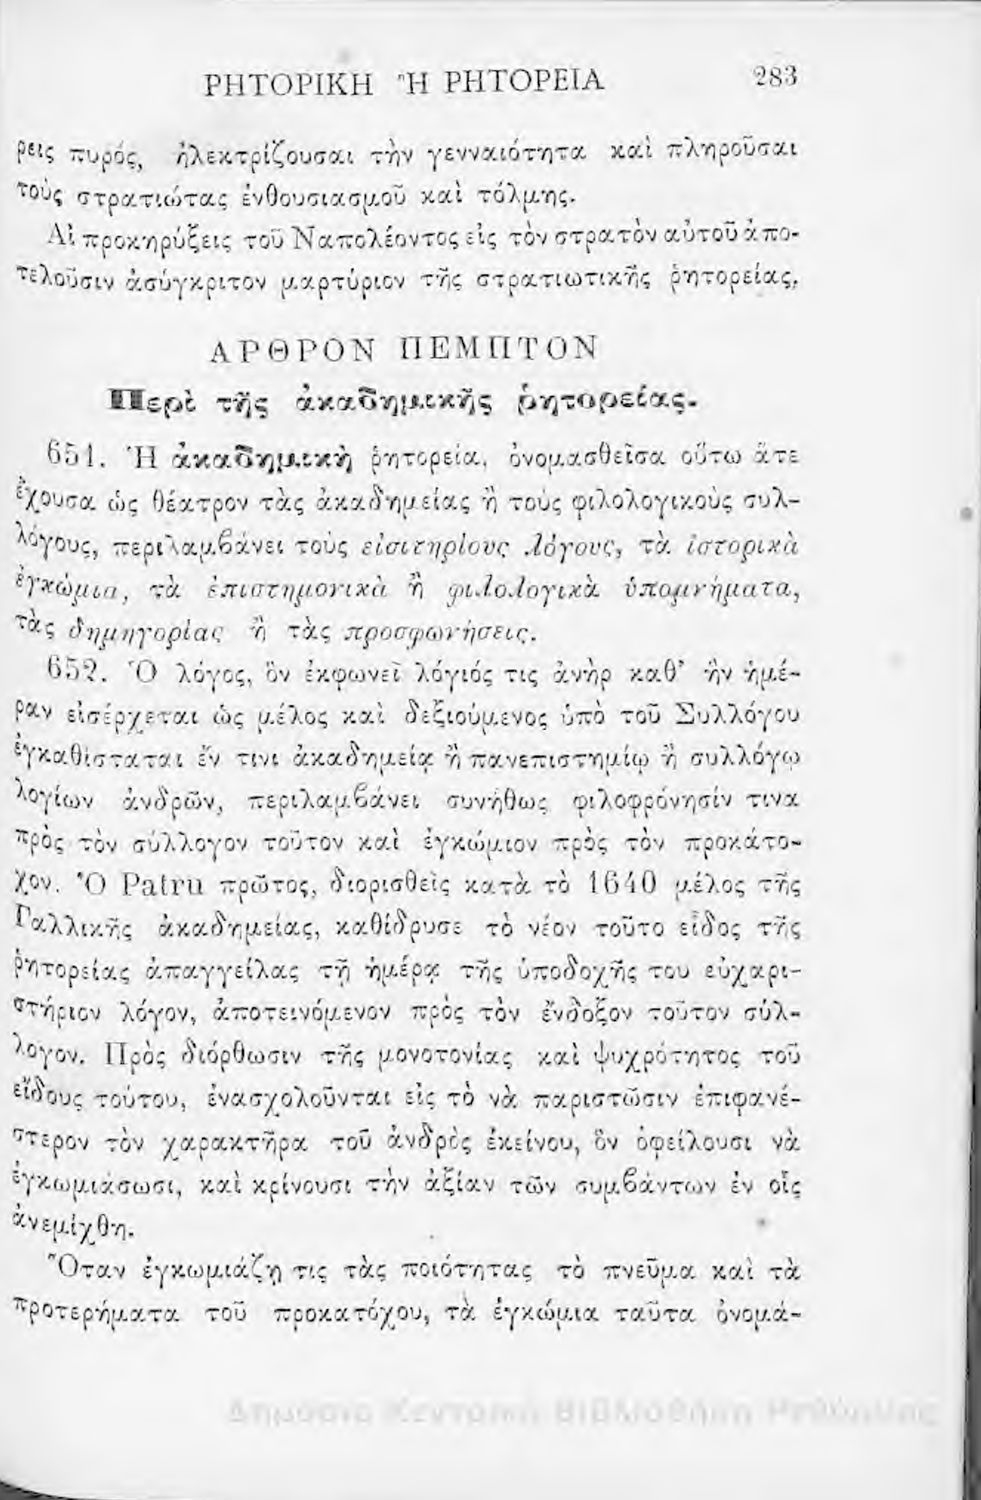 ΡΗΤΟΡΙΚΗ Ἢ ΡΗΤΟΡΕΙΑ 283
ρεις πυρός, ἠλεκτρίζουσαι τὴν γενναιότητα καὶ πληροῦσαι
τοὺς στρατιώτας ἐνθουσιασμοῦ καὶ τόλμης.
Αἱ προκηρύξεις τοῦ Ναπολέοντος εἰς τὸν στρατὸν αὐτοῦ ἀπο-
τελοῦσιν ἀσύγκριτον μαρτύριον τῆς στρατιωτικῆς ῥητορείας.
ΑΡΘΡΟΝ ΠΕΜΠΤΟΝ
Περὶ τῆς ἀκαδημικῆς ῥητορείας.
651. Ἡ ἀκαδημικὴ ῥητορεία, ὀνομασθεῖσα οὕτω ἅτε
ἔχουσα ὡς θέατρον τὰς ἀκαδημείας ἢ τοὺς φιλολογικοὺς συλ-
λόγους, περιλαμβάνει τοὺς εἰσιτηρίους λόγους, τὰ ἱστορικὰ
ἐγκώμια, τὰ ἐπιστημονικὰ ἢ φιλολογικὰ ὑπομνήματα,
τὰς δημηγορίας ἢ τὰς προσφωνήσεις.
652. Ὁ λόγος, ὃν ἐκφωνεῖ λόγιός τις ἀνὴρ καθ’ ἣν ἡμέ-
ραν εἰσέρχεται ὡς μέλος καὶ δεξιούμενος ὑπὸ τοῦ Συλλόγου
ἐγκαθίσταται ἔν τινι ἀκαδημείᾳ ἢ πανεπιστημίῳ ἢ συλλόγῳ
λογίων ἀνδρῶν, περιλαμβάνει συνήθως φιλοφρόνησίν τινα
πρὸς τὸν σύλλογον τοῦτον καὶ ἐγκώμιον πρὸς τὸν προκάτο-
χον. Ὁ Patru πρῶτος, διορισθεὶς κατὰ τὸ 1640 μέλος τῆς
Γαλλικῆς ἀκαδημείας, καθίδρυσε τὸ νέον τοῦτο εἶδος τῆς
ῥητορείας ἀπαγγείλας τῇ ἡμέρᾳ τῆς ὑποδοχῆς του εὐχαρι-
στήριον λόγον, ἀποτεινόμενον πρὸς τὸν ἔνδοξον τοῦτον σύλ-
λογον. Πρὸς διόρθωσιν τῆς μονοτονίας καὶ ψυχρότητος τοῦ
εἴδους τούτου, ἐνασχολοῦνται εἰς τὸ νὰ παριστῶσιν ἐπιφανέ-
στερον τὸν χαρακτῆρα τοῦ ἀνδρὸς ἐκείνου, ὃν ὀφείλουσι νὰ
ἐγκωμιάσωσι, καὶ κρίνουσι τὴν ἀξίαν τῶν συμβάντων ἐν οἷς
ἀνεμίχθη.
Ὅταν ἐγκωμιάζῃ τις τὰς ποιότητας τὸ πνεῦμα καὶ τὰ
προτερήματα τοῦ προκατόχου, τὰ ἐγκώμια ταῦτα ὀνομά-
Δημόσια Κεντρική Βιβλιοθήκη Ρεθύμνης